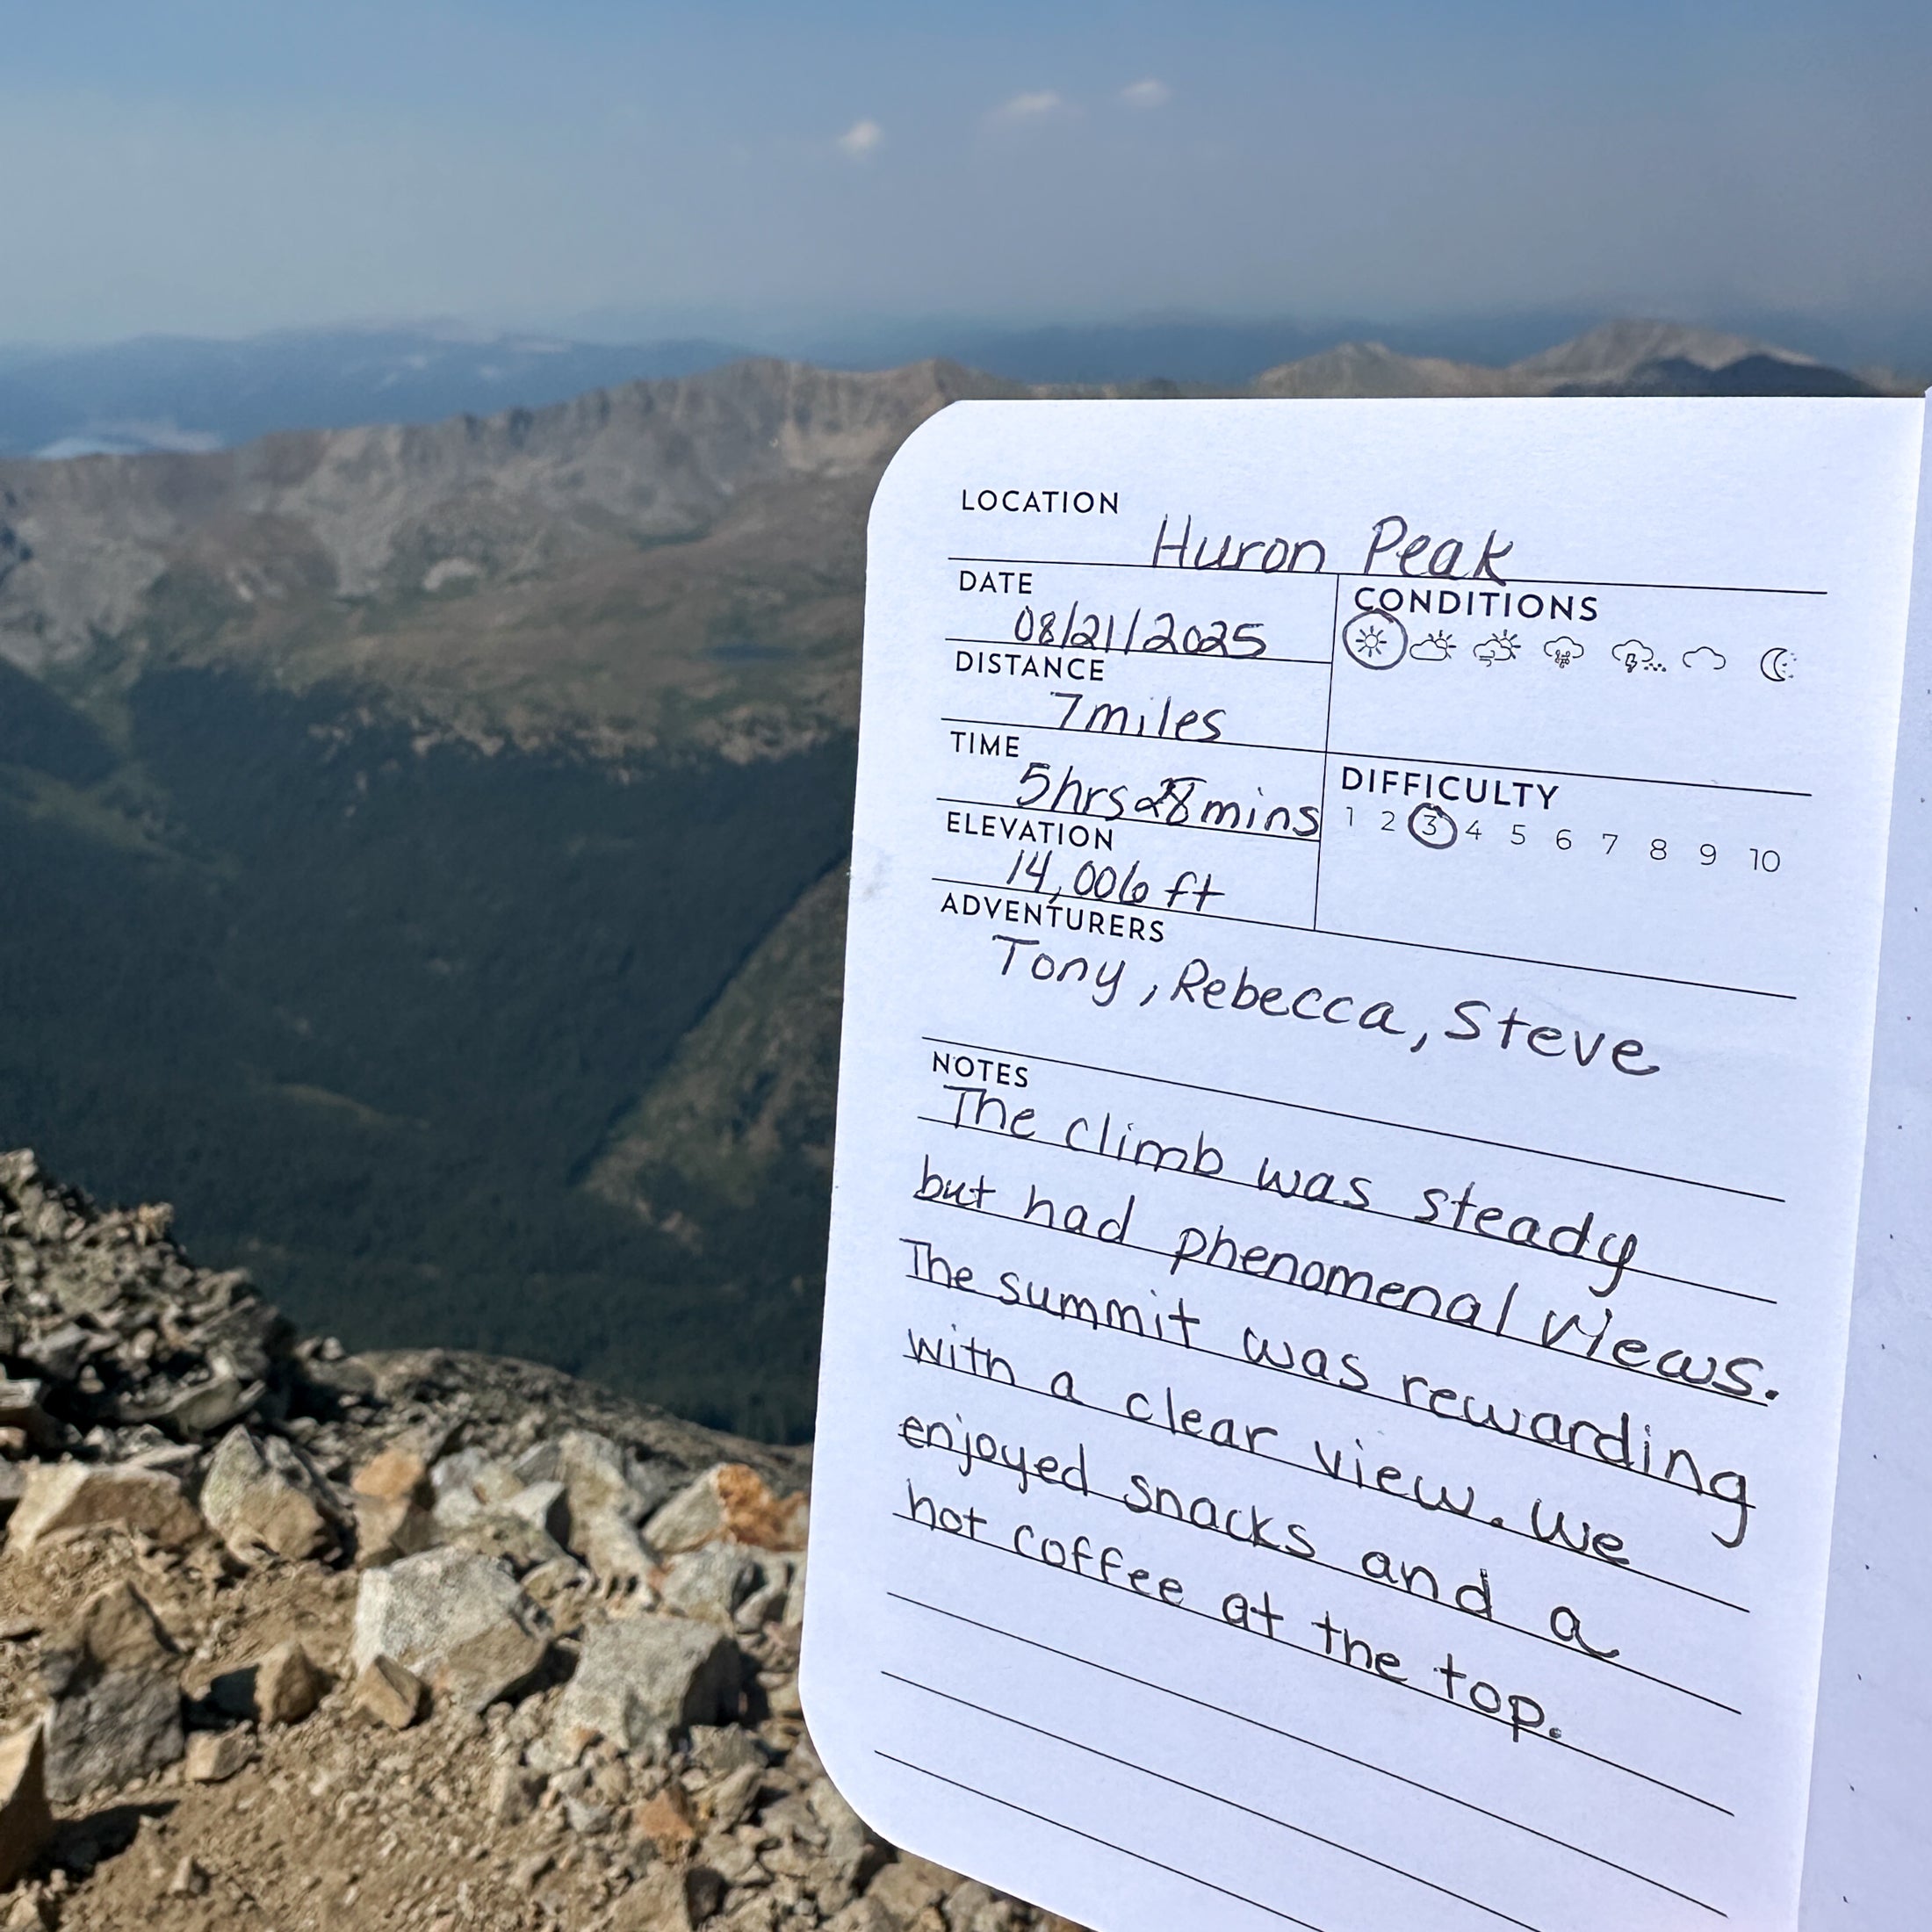 LOCATION
Huron Peak
DATE
08/21/2025
CONDITIONS
DISTANCE
7miles
TIME
5hrs 28 mins
DIFFICULTY
1 2 3 4 5 6 7 8 9 10
ELEVATION
14,006 ft
ADVENTURERS
Tony, Rebecca, Steve
NOTES
The climb was steady
but had phenomenal views.
The summit was rewarding
with a clear view. We
enjoyed snacks and a
hot coffee at the top.